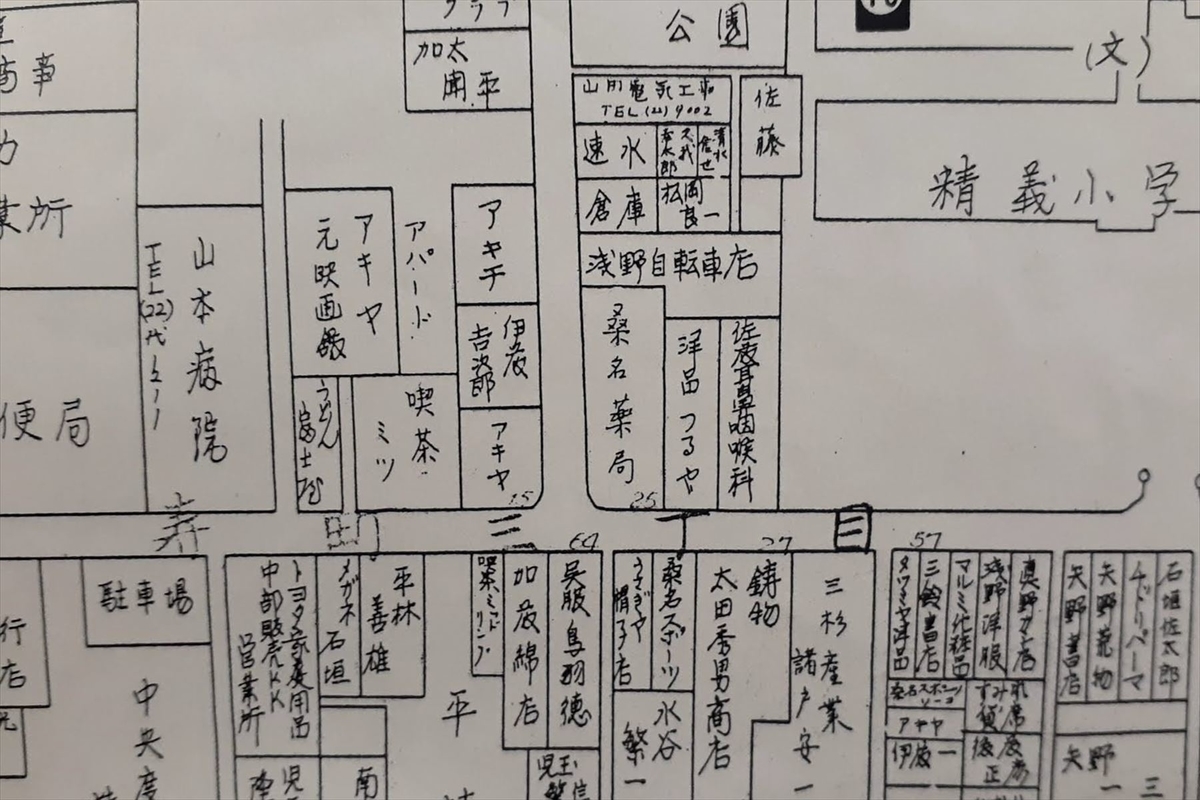 クラブ
加太
開平
公園
(文)
精義小学
佐藤
TEL(22)9002
速水
倉庫
松岡
良一
浅野自転車店
桑名薬局
洋品つるや
商事
業所
便局
山本病院
TEL(22)代
アキヤ
元映画館
アパート
アキチ
伊藤
吉次郎
うどん
富士屋
喫茶
ミツ
アキヤ
15
25
寿町三丁目
64
27
57
駐車場
行店
中央
トヨタ家庭用品
中部販売KK
営業所
メガネ
石垣
平林
善雄
平
加藤綿店
呉服鳥羽徳
うさぎや
帽子店
桑名スポーツ
水谷
繁一
鋳物
太田秀男商店
三杉産業
諸戸安一
タツミヤ洋品
三鈴書店
マルミヤ化粧品
浅野洋服
石垣佐太郎
チドリパーマ
矢野荒物
矢野書店
アキヤ
伊藤一
後藤
正彦
矢野
一三
南
児玉